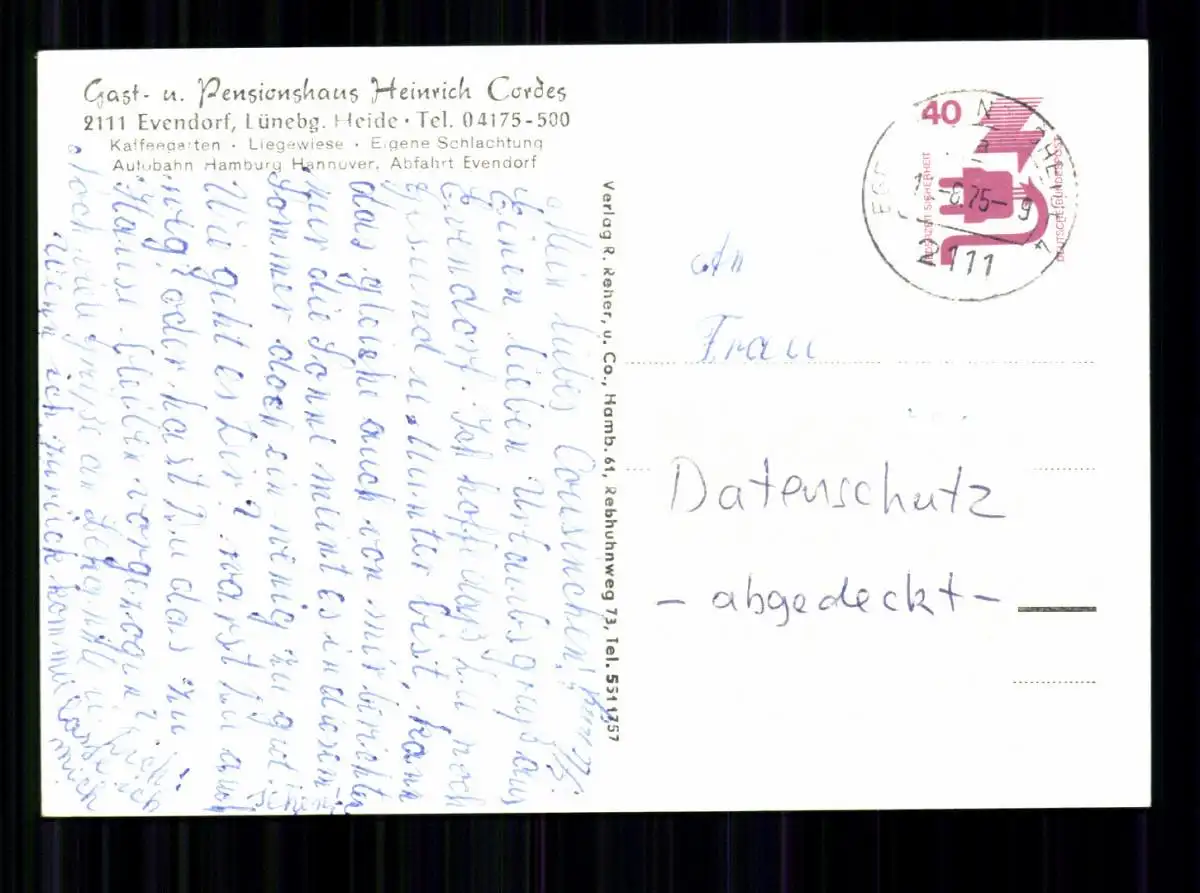 Gast- u. Pensionshaus Heinrich Cordes
2111 Evendorf, Lünebg. Heide · Tel. 04175-500
Kaffeegarten · Liegewiese · Eigene Schlachtung
Autobahn Hamburg Hannover, Abfahrt Evendorf
Mein liebes Cousinchen!
Einen lieben Urlaubsgruß aus
Evendorf. Ich hoffe daß Du noch
gesund u. Munter bist, kann
das gleiche auch von mir berichten
nur die Sonne meint es in diesem
Sommer doch ein wenig zu gut.
Wie geht es Dir? warst Du auch
weg? oder hast Du das zu
Hause bleiben vorgezogen?
Noch viele Grüße an
wenn ich zurück komme
mich
Verlag R. Reher, u. Co., Hamb. 61, Rebhuhnweg 73, Tel. 5511757
40
JEDERZEIT SICHERHEIT
DEUTSCHE BUNDESPOST
8.75-9
2111
An
Frau
Datenschutz
- abgedeckt -